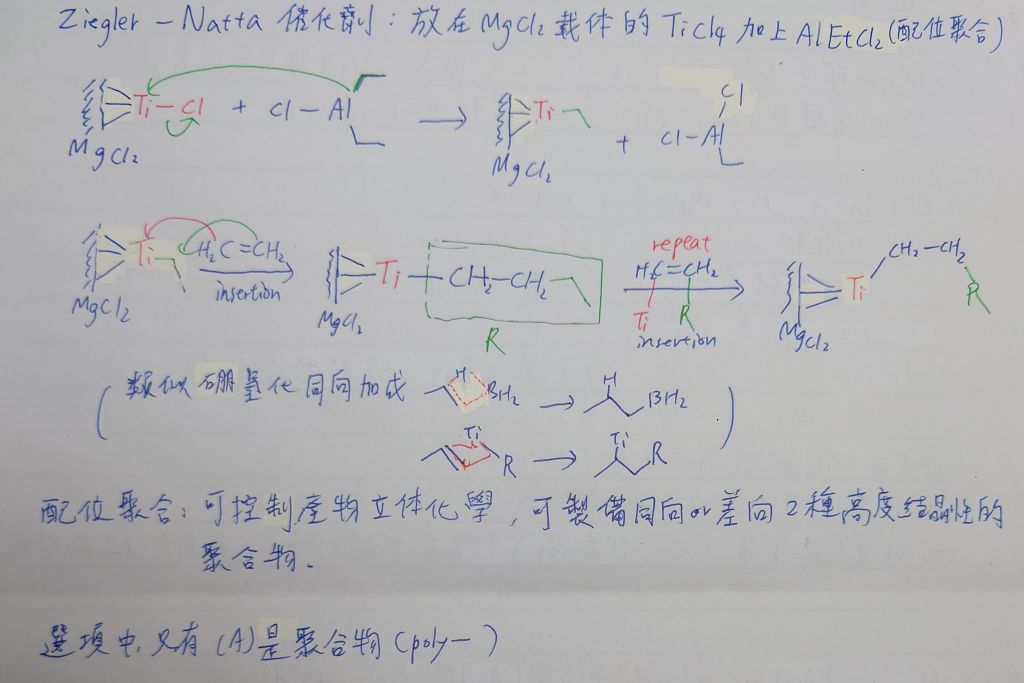 Ziegler-Natta 催化劑: 放在MgCl₂載体的TiCl₄加上AlEtCl₂(配位聚合)
Ti-Cl + Cl-Al → Ti + Cl-Al Cl
MgCl₂ MgCl₂
Ti H₂C=CH₂ insertion Ti-CH₂-CH₂ R repeat H₂C=CH₂ Ti R insertion Ti CH₂-CH₂ R
MgCl₂ MgCl₂ MgCl₂
(類似硼氫化同向加成 H BH₂ → H BH₂
Ti R → Ti R )
配位聚合: 可控制產物立体化學, 可製備同向or差向2種高度結晶性的
聚合物.
選項中, 只有(A)是聚合物(poly-)